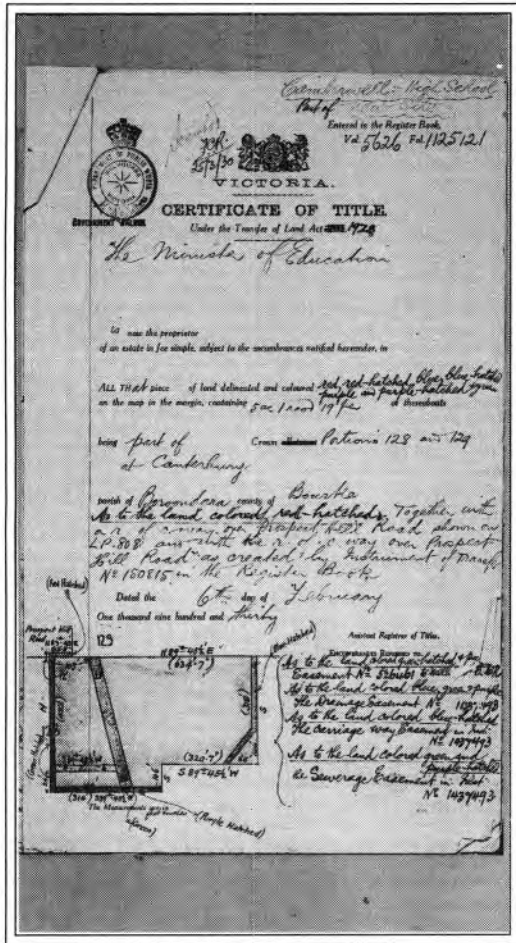 Camberwell - High School
Part of
Entered in the Register Book,
Vol. 5626 Fol. 1125121
25/3/30
VICTORIA.
CERTIFICATE OF TITLE.
Under the Transfer of Land Act 1928
The Minister of Education
is now the proprietor
of an estate in fee simple, subject to the encumbrances notified hereunder, in
ALL THAT piece of land delineated and coloured red, red-hatched, blue, blue-hatched
purple and purple-hatched green
on the map in the margin, containing 5ac 1 rood 19 per or thereabouts
being part of Crown Portions 128 and 129
at Canterbury
parish of Boroondara county of Bourke
As to the land colored red-hatched. Together with
a r. of c. way over Prospect Hill Road shown on
LP.808 and with the r. of c. way over Prospect
Hill Road as created by Instrument of Transfer
No 150815 in the Register Book
Dated the 6th day of February
One thousand nine hundred and thirty
Assistant Registrar of Titles.
(Red Hatched)
Prospect Hill
Road
129
N 89° 45½' E
(634'·7")
(Blue Hatched)
(320'·7")
S 89° 45½' W
(Green Hatched)
The Measurements are in
(Green)
(Purple Hatched)
As to the land colored green-hatched
Easement No
As to the land colored blue, green & purple
The Drainage Easement No 1037493
As to the land colored blue-hatched
The carriage way Easement in Inst.
No 1037493
As to the land colored green and
purple-hatched
the Sewerage Easement in Inst.
No 1437493